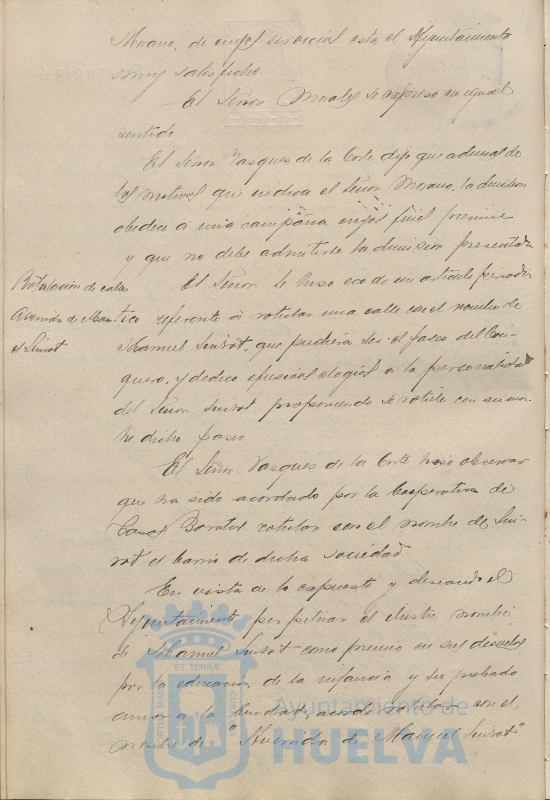 Morano, de cuyos servicios esta el Ayuntamiento
muy satisfecho.
El Señor Morales se expreso en igual
sentido
El Señor Vasques de la Corte dijo que ademas de
los motivos que indica el Señor Morano, la dimision
obedece á una campaña cuyos fines presume
y que no debe admitirse la dimision presentada
Rotulacion de calles
Avenida de Manu
el Siurot
El Señor se hizo eco de un articulo periodis
tico referente á rotular una calle con el nombre de
Manuel Siurot, que pudiera ser el paseo del Con
quero, y dedicó efusivos elogios a la personalidad
del Señor Siurot proponiendo se rotule con su nom
bre dicho paseo
El Señor Vasques de la Corte hizo observar
que ha sido acordado por la Cooperativa de
Casas Baratas rotular con el nombre de Siu
rot el barrio de dicha sociedad
En vista de lo expuesto y deseando el
Ayuntamiento perpetuar el ilustre nombre
de Manuel Siurot como premio en sus desvelos
por la educacion de la infancia y su probado
amor a la Ciudad, acordó rotular con el
nombre de "Avenida de Manuel Siurot"
PORTUS MARIS ET TERRÆ CUSTODIA
Ayuntamiento de
HUELVA